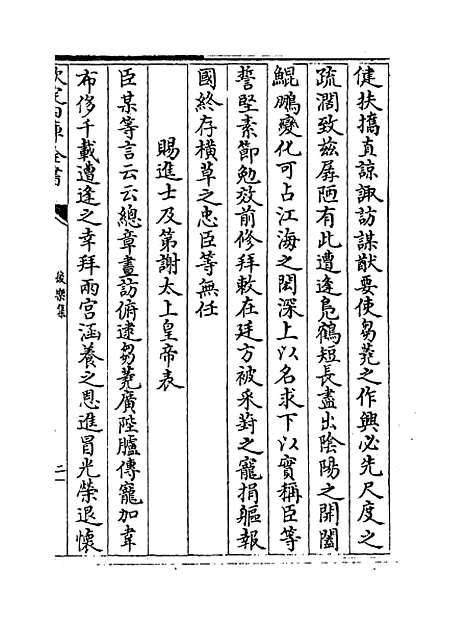 健扶攜直諒諏訪謀猷要使芻蕘之作興必先尺度之
疏濶致兹孱陋有此遭逢鳬鶴短長盡出陰陽之開闔
鯤鵬變化可占江海之閎深上以名求下以實稱臣等
誓堅素節勉效前修拜敕在廷方被采葑之寵捐軀報
國終存橫草之忠臣等無任
賜進士及第謝太上皇帝表
臣某等言云云總章晝訪俯逮芻蕘廣陛臚傳寵加韋
布侈千載遭逢之幸拜兩宮涵養之恩進冒光榮退懷
欽定四庫全書
後樂集
二